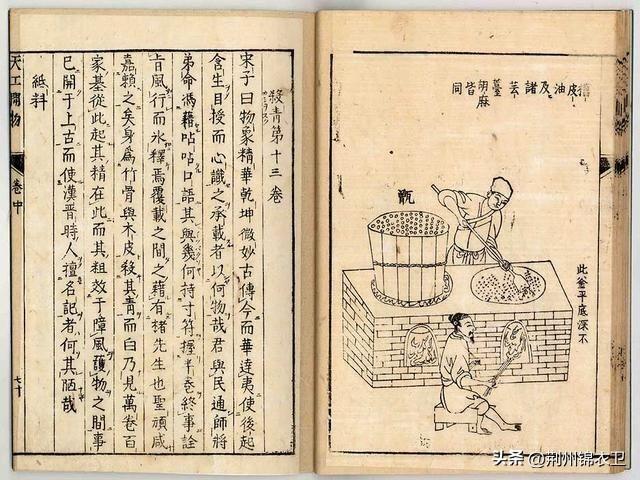 皮油及諸芸薹胡麻皆同
甑
此釜平底深不
殺青第十三卷
宋子曰物象精華乾坤微妙古傳今而華達夷使後起
含生目授而心識之承載者以何物哉君與民通師將
弟命馮藉呫呫口語其與幾何持寸符握半卷終事詮
旨風行而氷釋焉覆載之間之藉有楮先生也聖頑咸
嘉賴之矣身爲竹骨與木皮殺其青而白乃見萬卷百
家基從此起其精在此而其粗效于障風護物之間事
已開于上古而使漢晉時人擅名記者何其陋哉
紙料
天工開物
卷中
七十
头条 @荆州锦衣卫